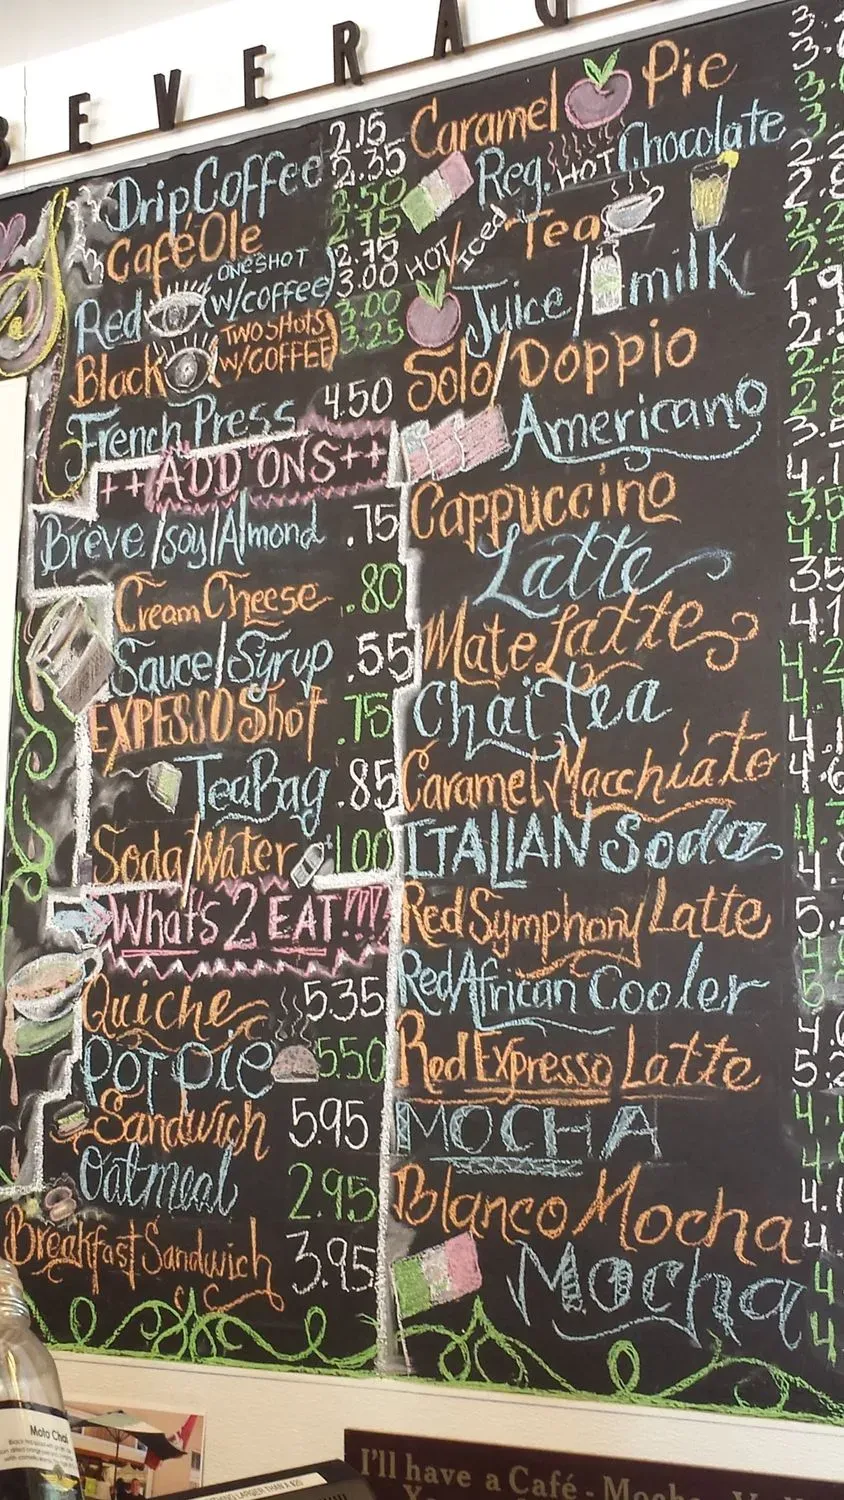 BEVERAG
Drip Coffee 2.15 2.35
Café Ole 2.50 2.75
Red (ONE SHOT w/coffee) 2.75 3.00
Black (TWO SHOTS w/COFFEE) 3.00 3.25
French Press 4.50
++ADD ONS++
Breve/soy/Almond .75
Cream Cheese .80
Sauce/Syrup .55
EXPESSO Shot .75
Tea Bag .85
Soda/Water 1.00
What's 2 EAT!!!
Quiche 5.35
POT PIE 5.50
Sandwich 5.95
Oatmeal 2.95
Breakfast Sandwich 3.95
Caramel Pie
Reg. HOT Chocolate
HOT/Iced Tea
Juice/milk
Solo/Doppio
Americano
Cappuccino
Latte
Mate Latte
Chai Tea
Caramel Macchiato
ITALIAN Soda
Red Symphony Latte
Red African Cooler
Red Expresso Latte
MOCHA
Blanco Mocha
Mocha
Moto Chai
LARGER THAN A $20
I'll have a Café - Mocha